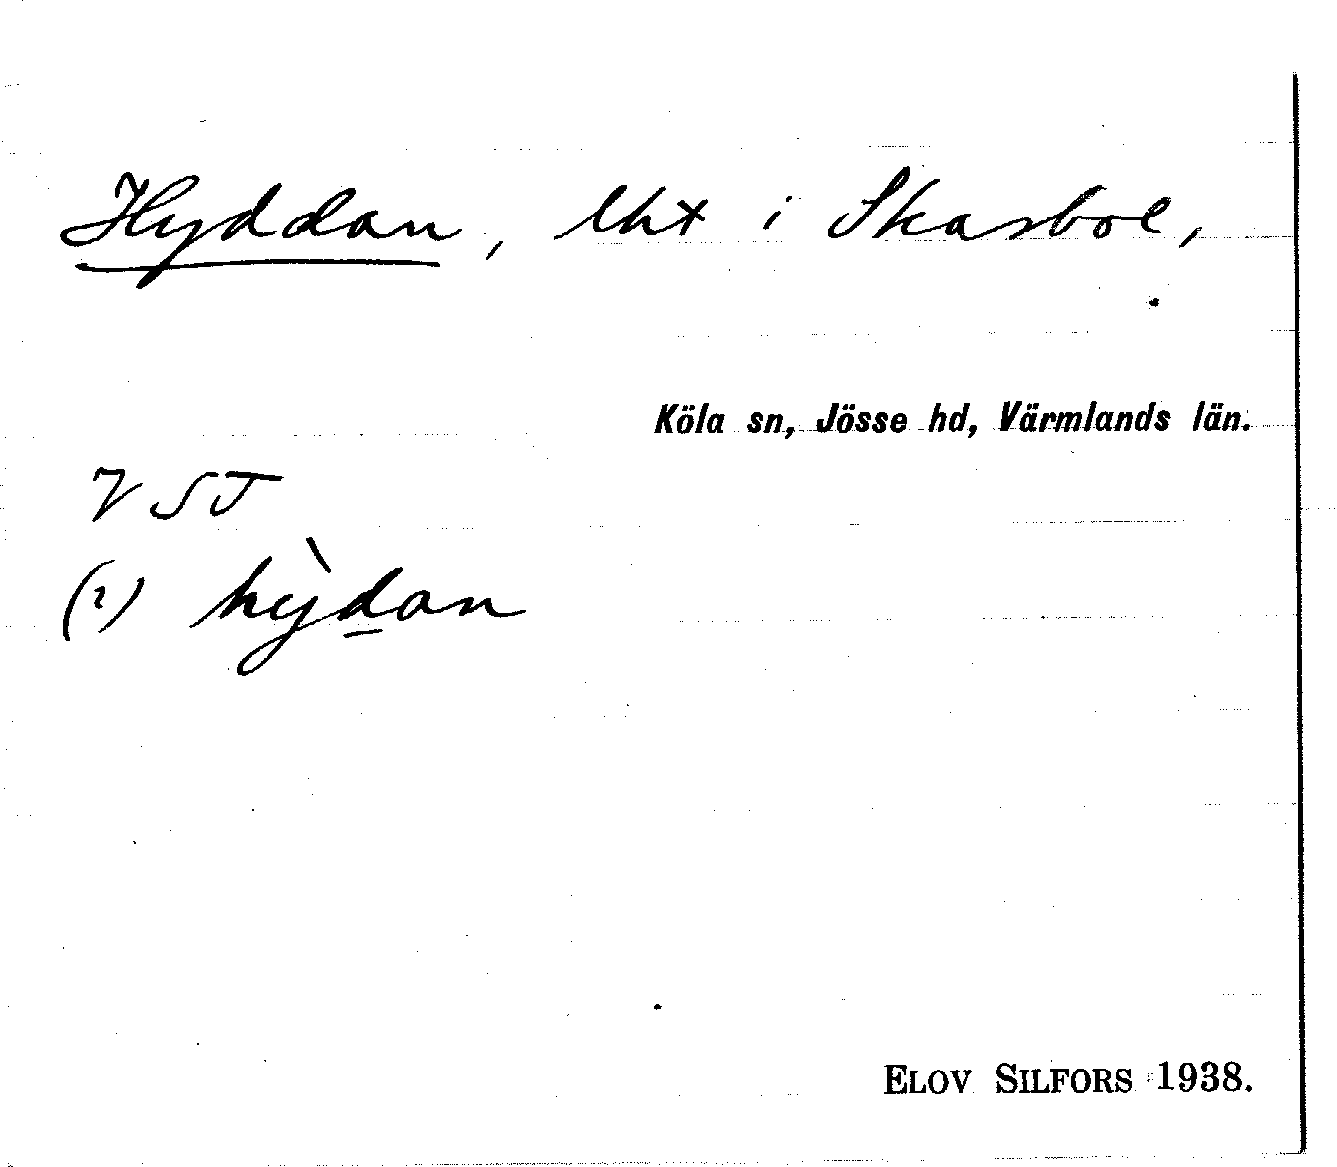 Hyddan, lht i Skasbol,
Köla sn, Jösse hd, Värmlands län.
V S T
(1) hỳdan
ELOV SILFORS 1938.